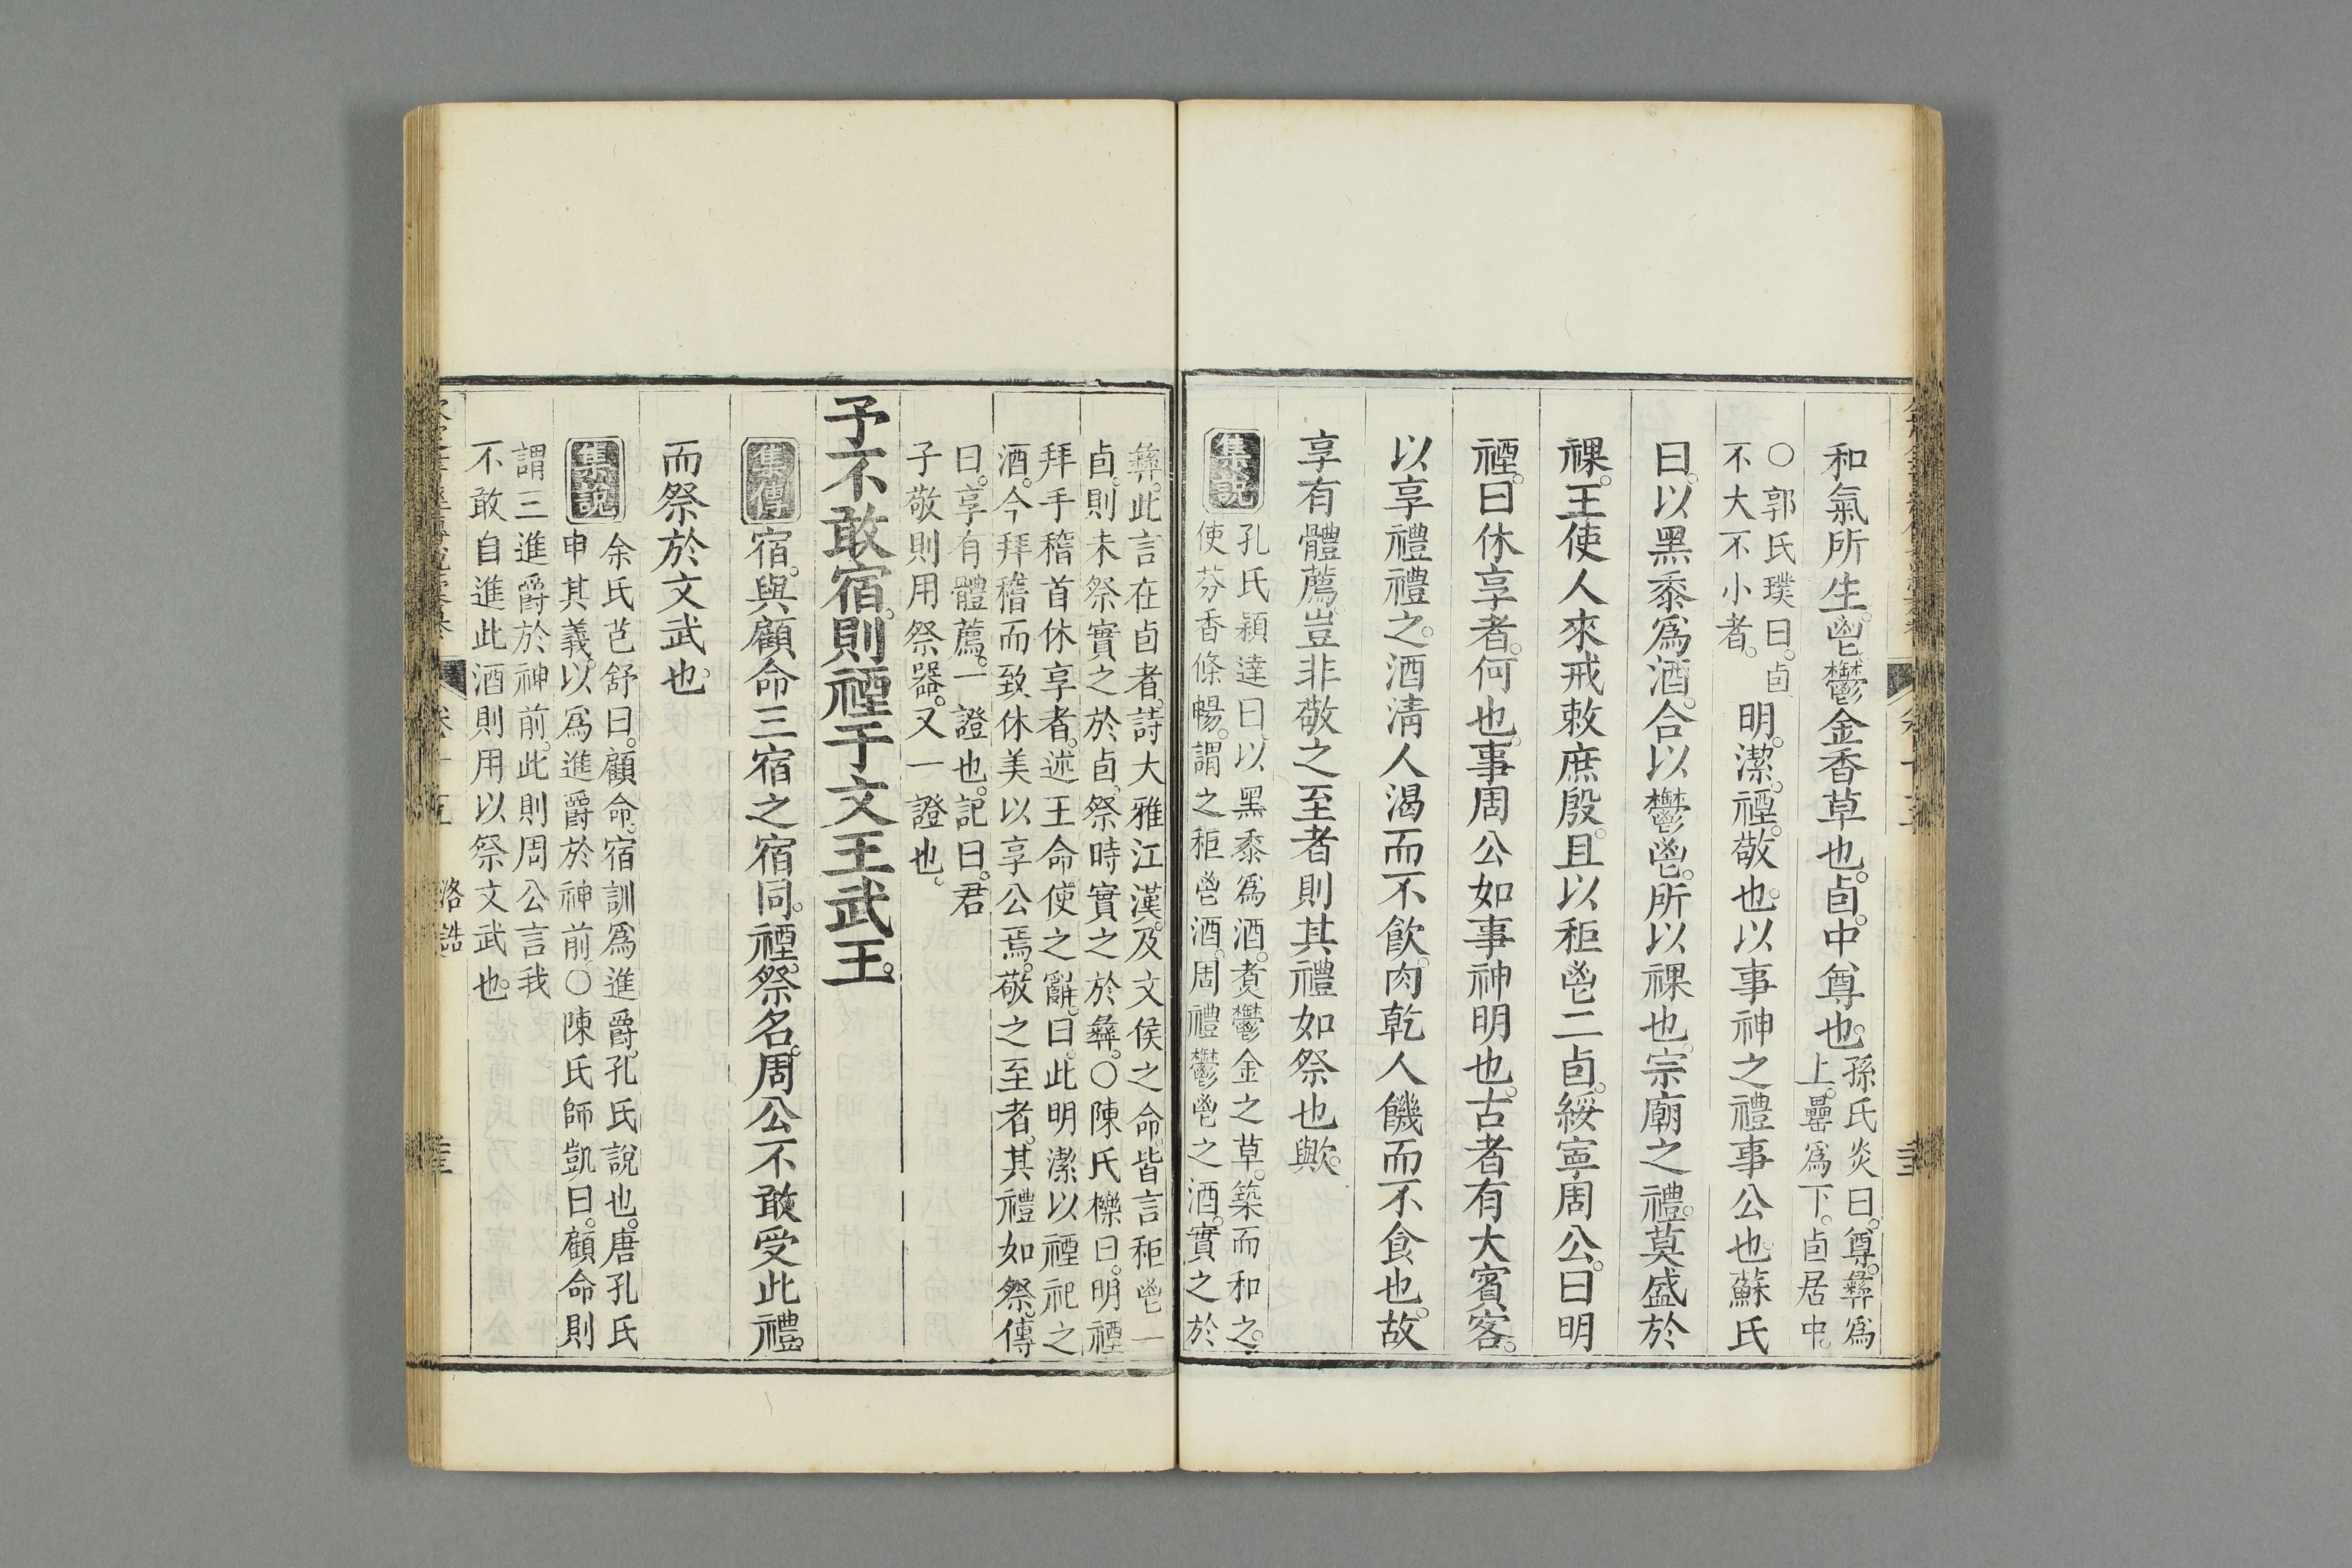 和氣所生。鬯。鬱金香草也。卣。中尊也。孫氏炎曰。尊彝爲
上。罍爲下。卣居中。
○郭氏璞曰。卣
不大不小者。
明。潔。禋。敬也。以事神之禮事公也。蘇氏
曰。以黑黍爲酒。合以鬱鬯。所以祼也。宗廟之禮。莫盛於
祼。王使人來戒敕庶殷。且以秬鬯二卣。綏寧周公。曰明
禋。曰休享者。何也。事周公如事神明也。古者有大賓客。
以享禮禮之。酒淸人渴而不飮。肉乾人饑而不食也。故
享有體薦。豈非敬之至者則其禮如祭也歟。
集說
孔氏穎達曰。以黑黍爲酒。煑鬱金之草。築而和之。
使芬香條暢。謂之秬鬯酒。周禮鬱鬯之酒。實之於
彝。此言在卣者。詩大雅江漢。及文侯之命。皆言秬鬯一
卣。則未祭實之於卣。祭時實之於彝。○陳氏櫟曰。明禋
拜手稽首休享者。述王命使之辭。曰。此明潔以禋祀之
酒。今拜稽而致休美以享公焉。敬之至者。其禮如祭。傳
曰。享有體薦。一證也。記曰。君
子敬則用祭器。又一證也。
予不敢宿。則禋于文王武王。
集傳
宿。與顧命三宿之宿同。禋。祭名。周公不敢受此禮。
而祭於文武也。
集說
余氏芑舒曰。顧命。宿訓爲進爵。孔氏說也。唐孔氏
申其義。以爲進爵於神前。○陳氏師凱曰。顧命則
謂三進爵於神前。此則周公言我
不敢自進此酒則用以祭文武也。
洛誥